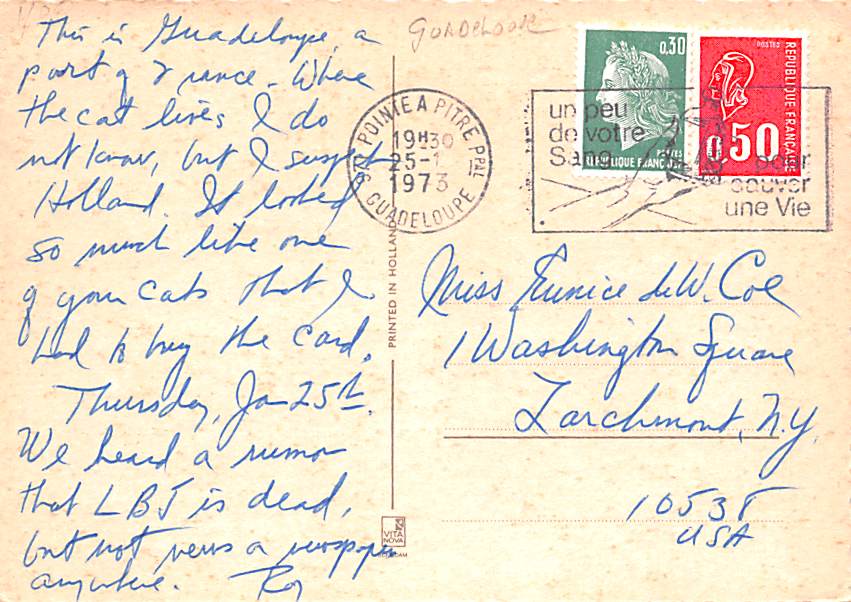 GUADELOUPE
This is Guadeloupe, a
part of France. Where
the cat lives I do
not know, but I suspect
Holland. It looked
so much like one
of your cats that I
had to buy the card.
Thursday, Jan 25th.
We heard a rumor
that LBJ is dead,
but not news a newspaper
anywhere. Roy
PRINTED IN HOLLAND
VITA
NOVA
POINTE A PITRE PPAL
19H30
25-1
1973
GUADELOUPE
0,30
POSTES
REPUBLIQUE FRANÇAISE
POSTES
REPUBLIQUE FRANÇAISE
0,50
un peu
de votre
Sang
pour
sauver
une Vie
Miss Eunice deW. Coe
1 Washington Square
Larchmont, N.Y.
10538
USA